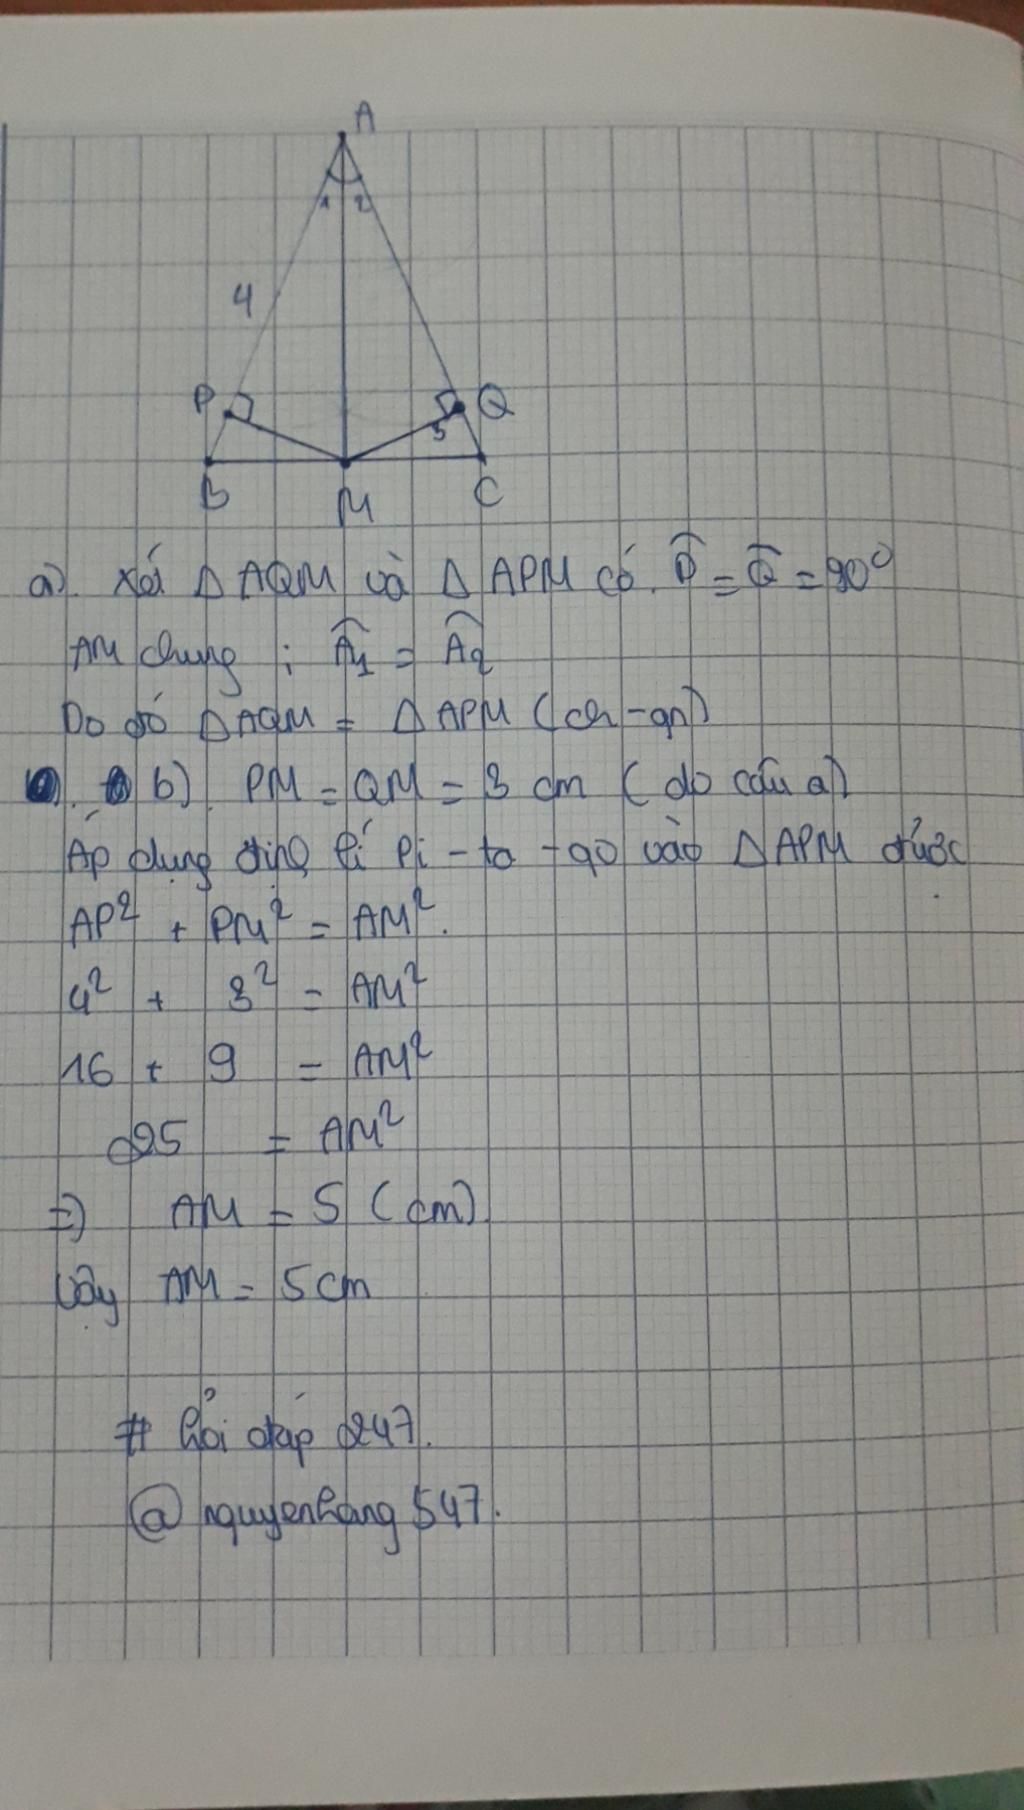 A
1 2
4
P Q
3
B M C
a) Xét Δ AQM và Δ APM có P̂ = Q̂ = 90°
AM chung ; Â1 = Â2
Do đó Δ AQM = Δ APM (ch-gn)
b) PM = QM = 3 cm (do câu a)
Áp dụng định lí Pi-ta-go vào Δ APM được
AP² + PM² = AM².
4² + 3² = AM²
16 + 9 = AM²
25 = AM²
=) AM = 5 (cm)
Vậy AM = 5cm
# hỏi đáp 247.
@ nguyenhang 547.